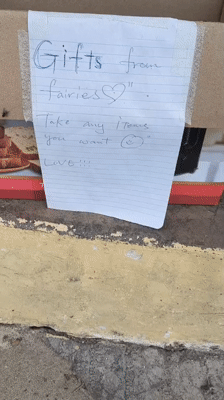 Gifts from
fairies♡"
Take any items
you want ☺
LOVE!!!